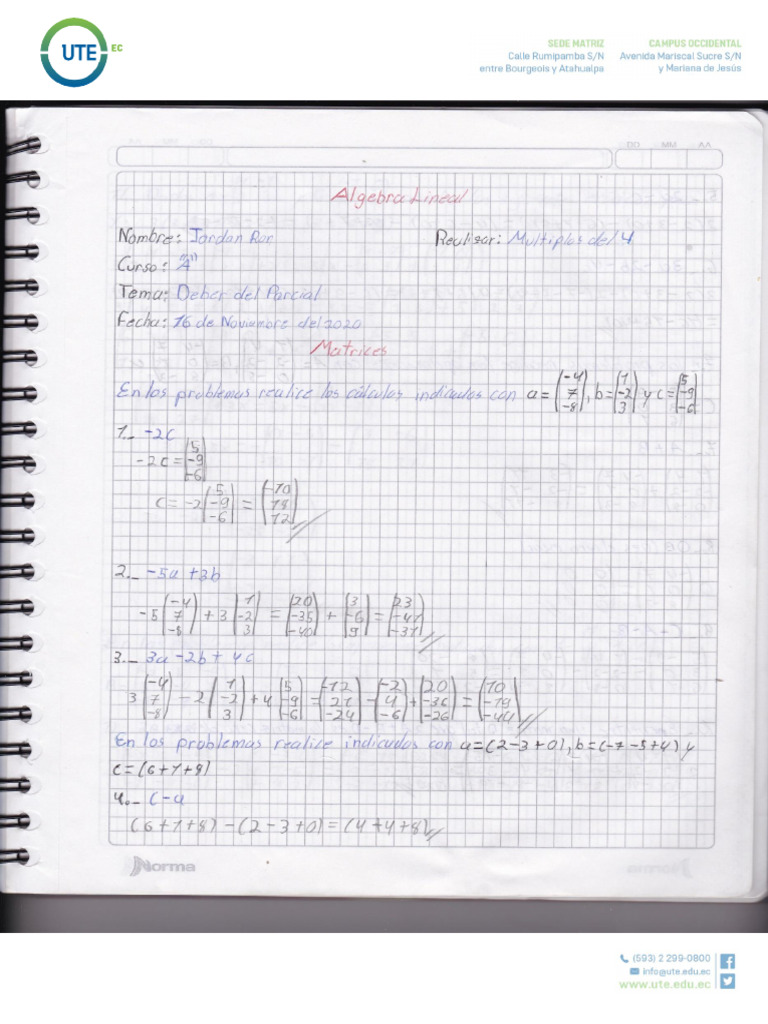 UTE EC
SEDE MATRIZ
Calle Rumipamba S/N
entre Bourgeois y Atahualpa
CAMPUS OCCIDENTAL
Avenida Mariscal Sucre S/N
y Mariana de Jesús
DD MM AA
Algebra Lineal
Nombre: Jordan Ron Realizar: Multiplos del 4
Curso: "A"
Tema: Deber del Parcial
Fecha: 16 de Noviembre del 2020
Matrices
En los problemas realice los cálculos indicados con a=(-4 7 -8), b=(1 -2 3) y c=(5 -9 -6)
1._ -2c
-2c=(5 -9 -6)
c=-2(5 -9 -6) = (-10 18 12)
2._ -5a+3b
-5(-4 7 -8) + 3(1 -2 3) = (20 -35 -40) + (3 -6 9) = (23 -41 -31)
3._ 3a-2b+4c
3(-4 7 -8) - 2(1 -2 3) + 4(5 -9 -6) = (-12 21 -24) - (-2 4 -6) + (20 -36 -26) = (10 -19 -44)
En los problemas realice indicados con a=(2-3+0), b=(-7-5+4) y
c=(6+1+8)
4._ c-a
(6+1+8)-(2-3+0)=(4+4+8)
Norma
(593) 2 299-0800
info@ute.edu.ec
www.ute.edu.ec